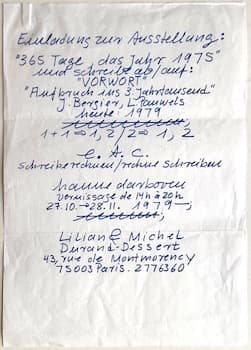 Einladung zur Ausstellung:
"365 Tage das Jahr 1975"
und schreibe ab/auf:
"VORWORT"
"Aufbruch ins 3. Jahrtausend"
J. Bergier, L. Pauwels
heute 1979
1+1 ⇒ 1, 2/2 ⇒ 1, 2
e. A. C.
schreiberechnen/rechne schreiben
hanne darboven
vernissage de 14h à 20h
27.10. → 28.11. 1979 —,
Liliane Michel
Durand-Dessert
43, rue de Montmorency
75003 Paris. 2776360